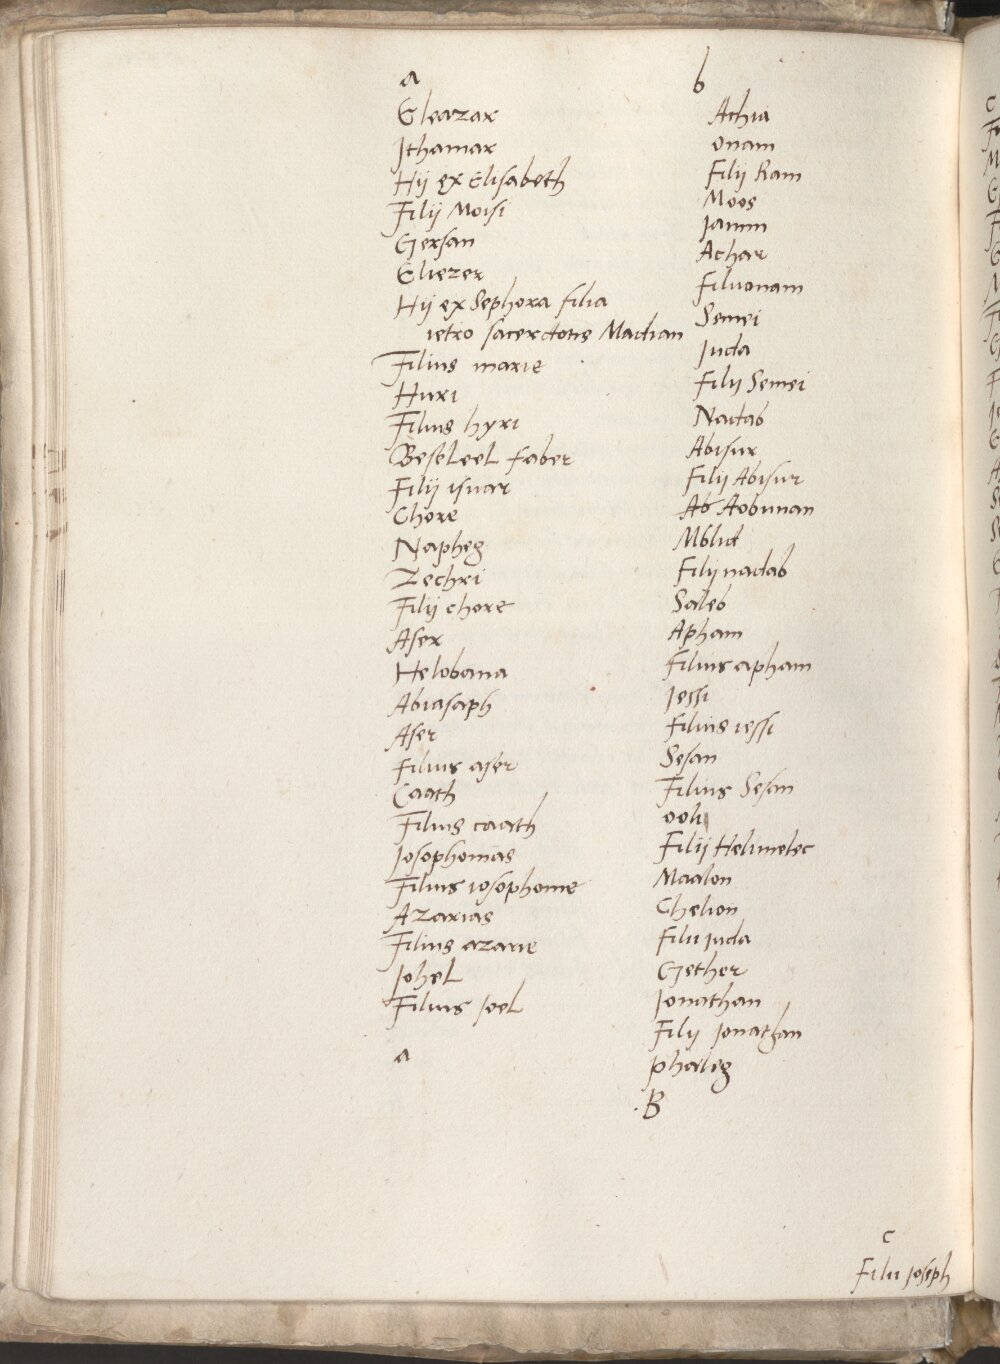 a
Eleazar
Ithamar
Hij ex Elisabeth
Filij Moisi
Gersan
Eliezer
Hij ex Sephora filia
ietro sacerdotis Madian
Filius marie
Huri
Filius hyri
Beseleel faber
Filij isuar
Chore
Napheg
Zechri
Filij chore
Aser
Helobana
Abiasaph
Aser
Filius aser
Caath
Filius caath
Josophomas
Filius iosophome
Azarias
Filius azarie
Johel
Filius Joel
a
b
Achia
onam
Filij Ram
Moos
Jamin
Achar
Filuonam
Semei
Juda
Filij Semei
Nadab
Abisur
Filij Abisur
Ab Aobunan
Mblid
Filij nadab
Saleb
Apham
Filius apham
Jessi
Filius iessi
Sesan
Filius Sesan
ooli
Filij Helimelec
Maalon
Chelion
Filii Juda
Gether
Jonathan
Filij Jonathan
phaleg
.B
c
Filii Joseph